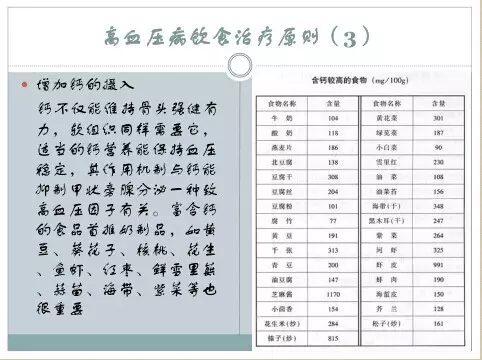 高血压病饮食治疗原则（3）
增加钙的摄入
钙不仅能维持骨头强健有
力，软组织同样需要它，
适当的钙营养能保持血压
稳定，其作用机制与钙能
抑制甲状旁腺分泌一种致
高血压因子有关。富含钙
的食品首推奶制品，如黄
豆、葵花子、核桃、花生
、鱼虾、红枣、鲜雪里蕻
、蒜苗、海带、紫菜等也
很重要
含钙较高的食物（mg/100g）
食物名称 含量 食物名称 含量
牛 奶 104 黄花菜 301
酸 奶 118 绿苋菜 187
燕麦片 186 小白菜 90
北豆腐 138 雪里红 230
豆腐干 308 油 菜 108
豆腐丝 204 油菜苔 156
豆腐粉 101 海带(干) 348
腐 竹 77 黑木耳(干) 247
黄 豆 191 紫 菜 264
千 张 313 河 虾 325
青 豆 200 虾 皮 991
油豆腐 147 蚌 肉 190
芝麻酱 1170 海蜇皮 150
小茴香 154 芥 兰 128
花生米(炒) 284 松子(炒) 161
榛子(炒) 815